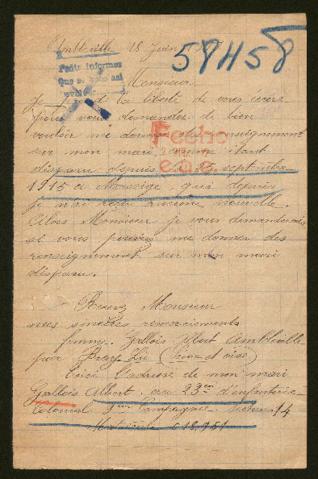 Ambleville 18 Juin
54458
Monsieur
Je prend la liberté de vous écrire
pour vous demander de bien
vouloir me donner renseignement
sur mon mari comme étant
disparu depuis le 25 septembre
1915 a Massige, que depuis
je n'ai reçu aucune nouvelle.
Alors Monsieur je vous demanderais
si vous pouviez me donner des
renseignement sur mon mari
disparu.
Recevez Monsieur
mes sincères remerciements
Gallois Albert Ambleville
par Bray Lû (Seine et oise)
Voici l'adresse de mon mari
Gallois Albert, au 23me d'infanterie
Colonial 9me Compagnie 14
Matricule
Fecho
e.o.e.